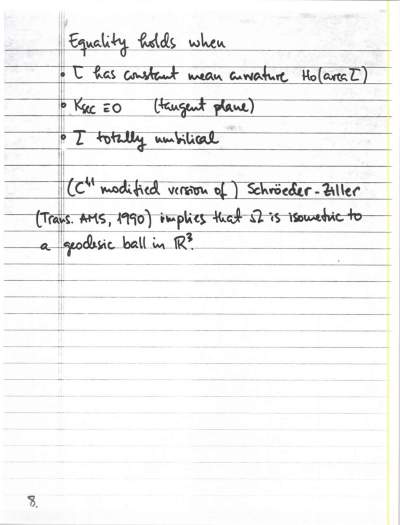 Equality holds when
• Σ has constant mean curvature H₀(area Σ)
• K_sec ≡ 0 (tangent plane)
• Σ totally umbilical
(C^{1,1} modified version of) Schröeder-Ziller
(Trans. AMS, 1990) implies that Ω is isometric to
a geodesic ball in ℝ³.
8.